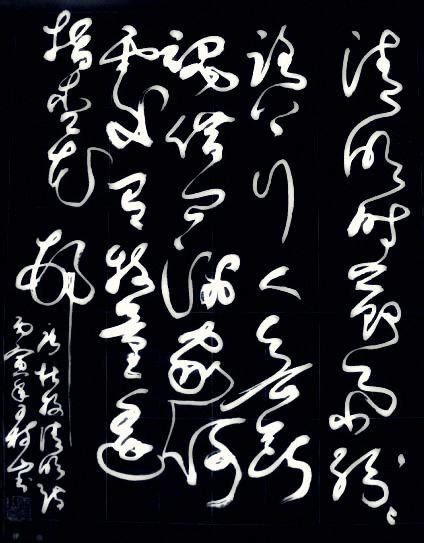 清明时节雨纷々
路上行人欲断
魂借问酒家何
处有牧童遥
指杏花邨
杜牧清明诗
丙寅年